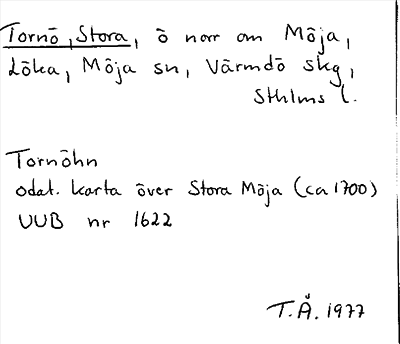 Tornö, Stora, ö norr om Möja,
Löka, Möja sn, Värmdö skg,
Sthlms l.
Tornöhn
odat. karta över Stora Möja (ca 1700)
UUB nr 1622
T.Å. 1977